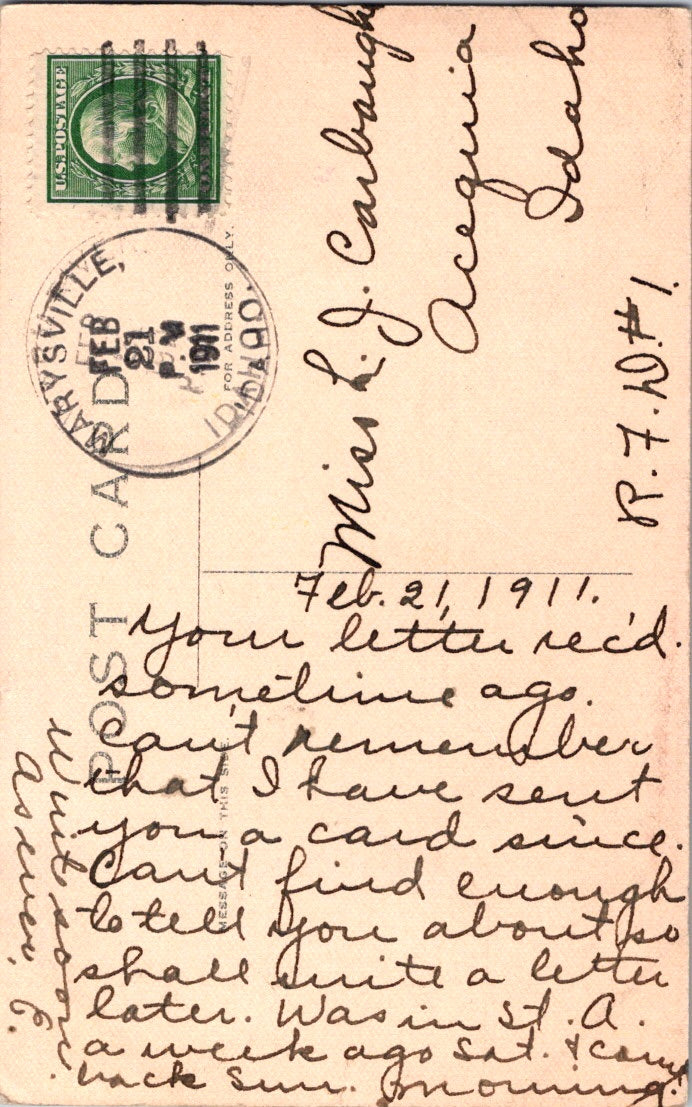 U.S. POSTAGE
MARYSVILLE,
IDAHO.
FEB
21
P.M
1911
POST CARD
FOR ADDRESS ONLY.
MESSAGE ON THIS SIDE
Miss L. J. Carbaugh
Acequia
Idaho
R.F.D.#1.
Feb. 21, 1911.
Your letter rec'd.
sometime ago.
Can't remember
that I have sent
you a card since.
Can't find enough
to tell you about so
shall write a letter
later. Was in St. A.
a week ago Sat. & came
back Sun. morning.
Write soon.
As ever, C.